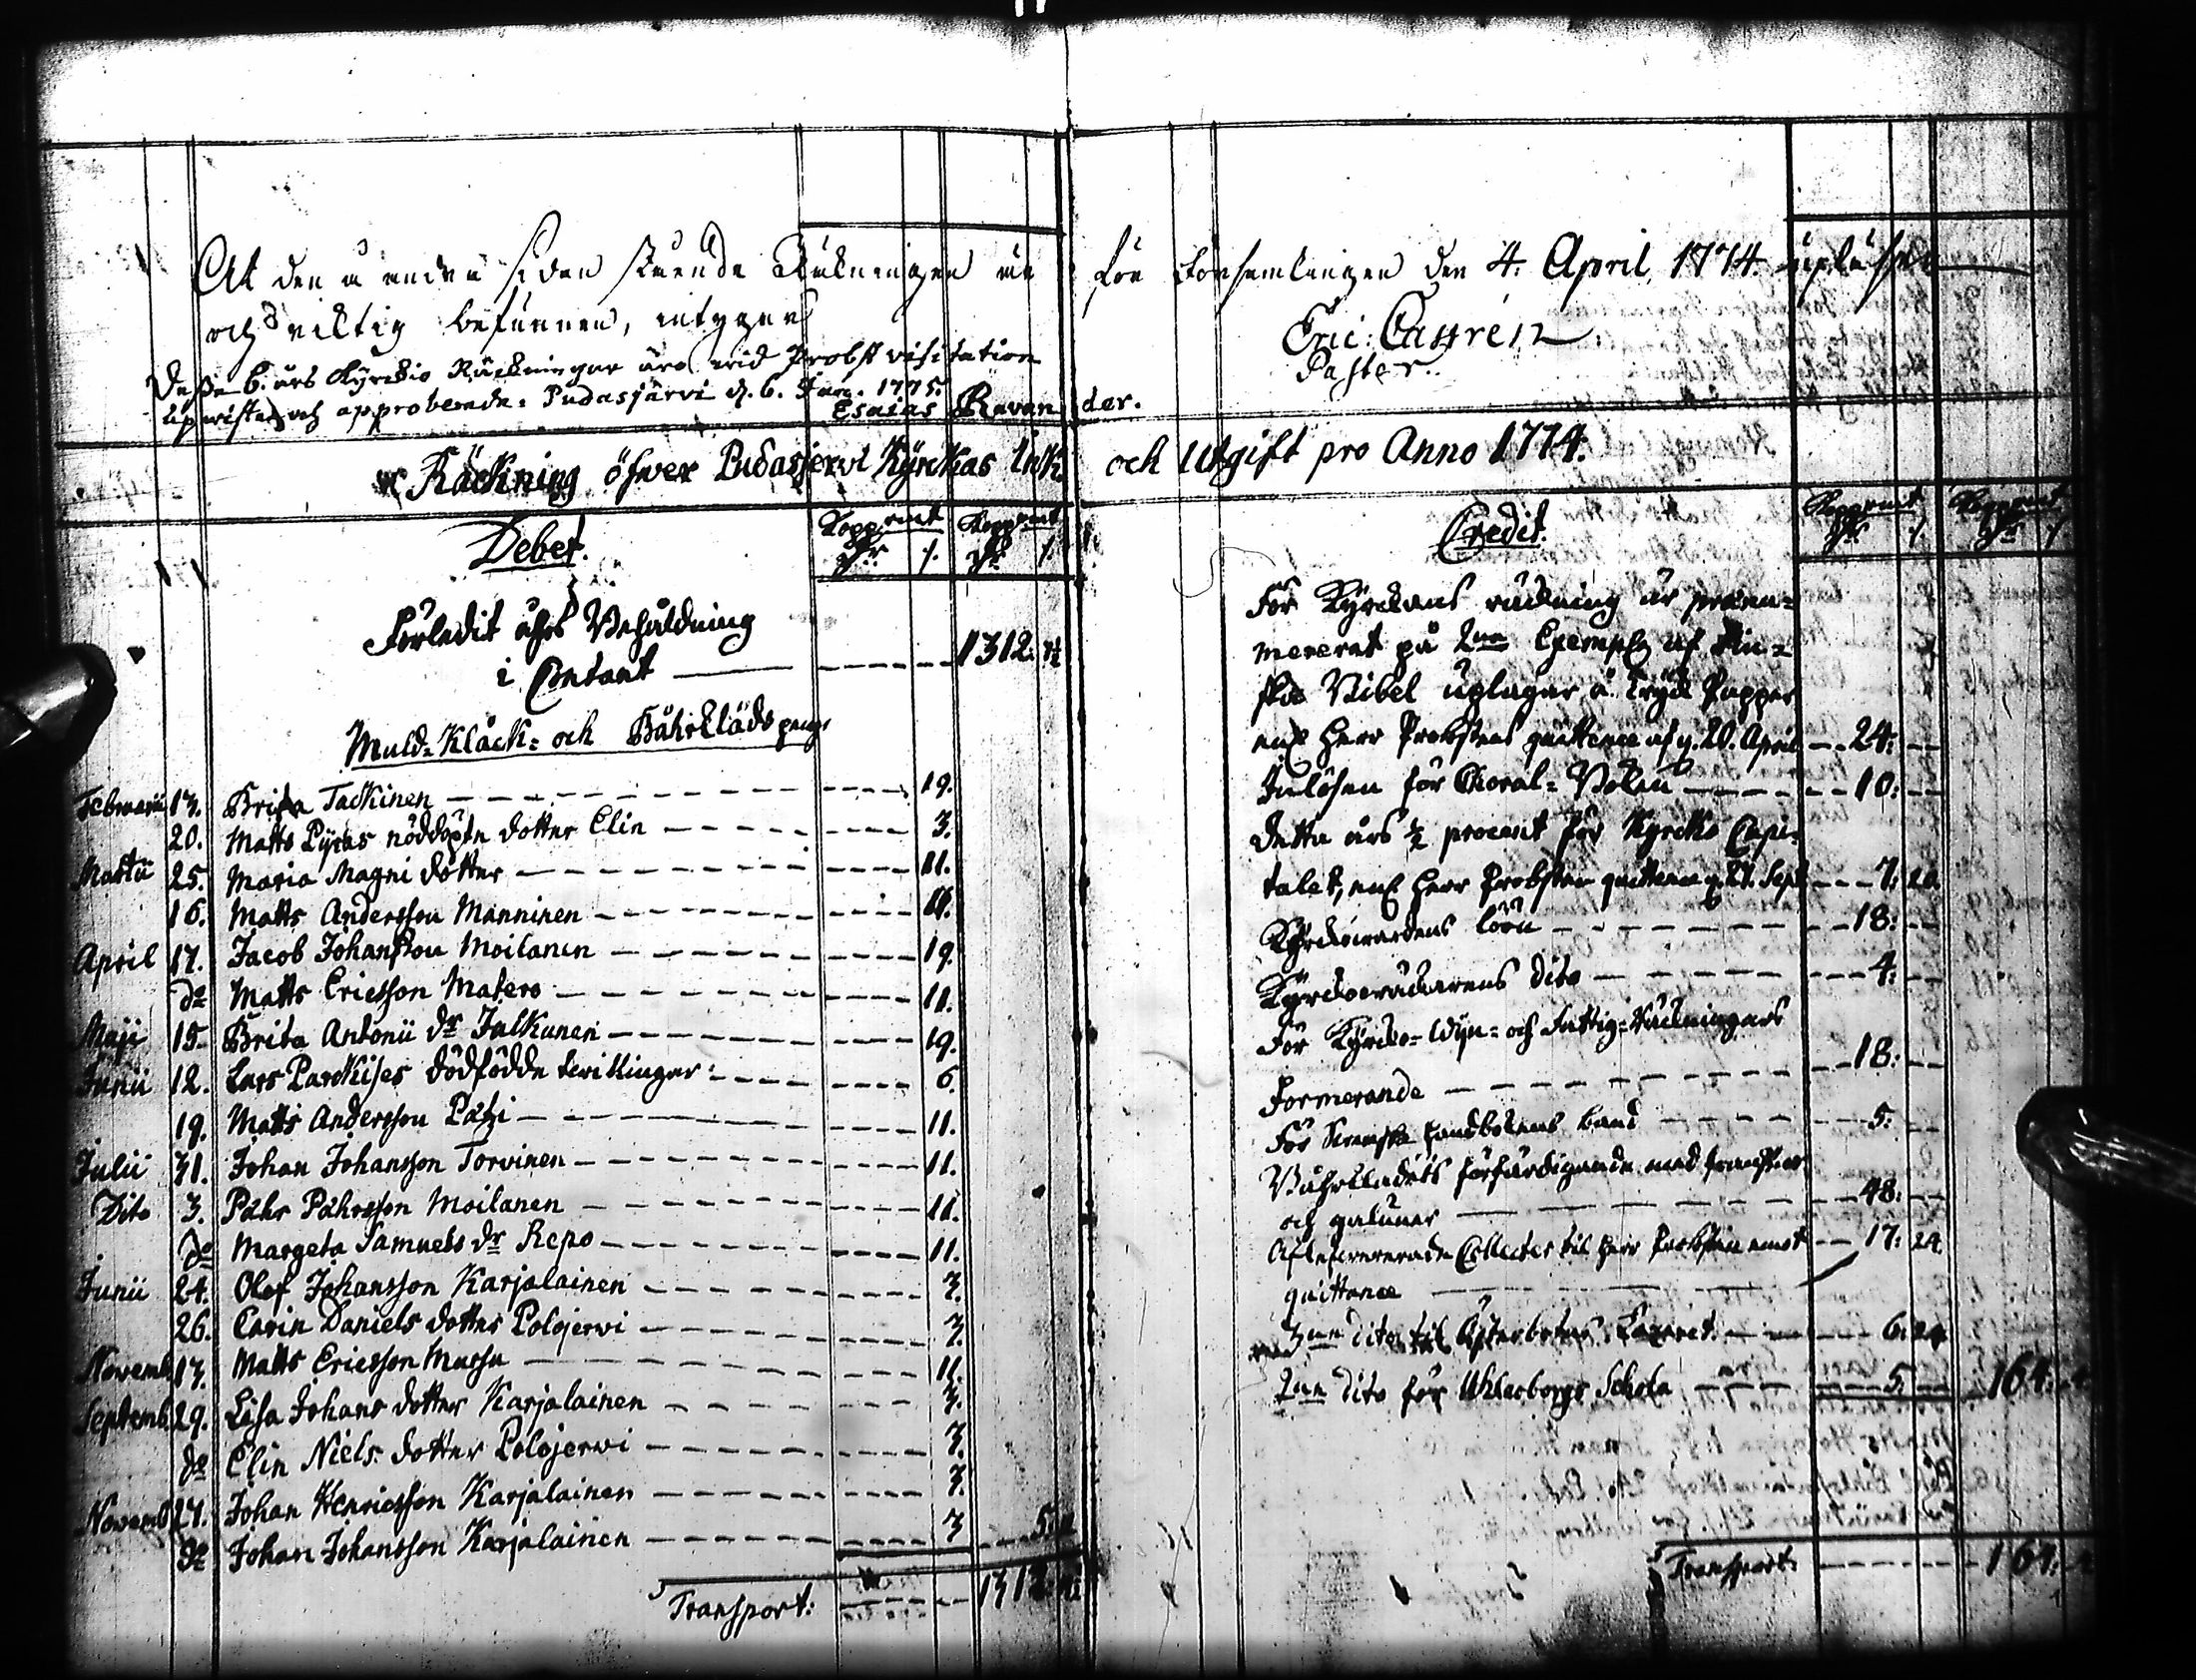 At den å andra sidan stående Räkningen är för Församlingen den 4. April 1774. upläsen
och riktig befunnen, intygar
Eric Castrén
Pastor.
Desse 6. års Kyrckio Räckningar äro wid Probst visitation
upwiste och approberade: Pudasjärvi d. 6. Jan. 1775.
Esaias Ravander.
Räckning öfwer Pudasjerwi Kyrckas Ink. och Utgift pro Anno 1774.
Debet.
Kopp.mt Kopp.mt
Förledit åhrs Behåldning
i Contant 1312:
Muld- Klåck- och Båhrkläds peng.
Februarii 13. Brita Tackinen 19.
20. Matts Pyräs nöddöpte dotter Elin 3.
Martii 25. Maria Magni dotter 11.
16. Matts Andersson Manninen 11.
April 17. Jacob Johansson Moilanen 19.
do Matts Ericsson Matero 11.
Maji 15. Brita Antonii dr Jalkunen 19.
Junii 12. Lars Parckises dödfödde twillingar 6.
19. Matts Andersson Pätzi 11.
Julii 31. Johan Johansson Torvinen 11.
Dito 3. Påhr Påhrsson Moilanen 11.
do Margeta Samuels dr Repo 11.
Junii 24. Olof Johansson Karjalainen 3.
26. Carin Daniels dotter Polojerwi 3.
Novemb. 13. Matts Ericsson Mursu 11.
Septemb. 29. Lisa Johans dotter Karjalainen 3.
do Elin Niels dotter Polojerwi 3.
Novemb. 27. Johan Henricsson Karjalainen 3.
do Johan Johansson Karjalainen 3
Transport:
Credit.
Kopp.mt Kopp.mt
För Kyrckans räckning är prænu-
mererat på 2ne Exempl. af Fin-
ska Bibel uplagar å Tryck Papper
enl. Herr Probstens quittence af d. 20. April 24:
Inlösen för Choral-Boken 10:
Detta års ½ procent för Kyrcko Capi-
talet, enl. Herr Probstens quittence d. 27. Sept. 7:
Kyrckowärdens lön 18:
Kyrckowäckarens dito 4:
För Kyrcko- Wijn- och Fattig-Räckningars
Formerande 18:
För Swenska Handbokens band 5:
Båhrklädets förfärdigande med fransar
och galuner 48:
Aflefwererade Collecter til Herr Probsten emot 17: 24
quittance
3ne dito til Österbotns Lazaret 6: 24
2ne dito för Uhleåborgs Schola 5: 164:
Transport: 164: